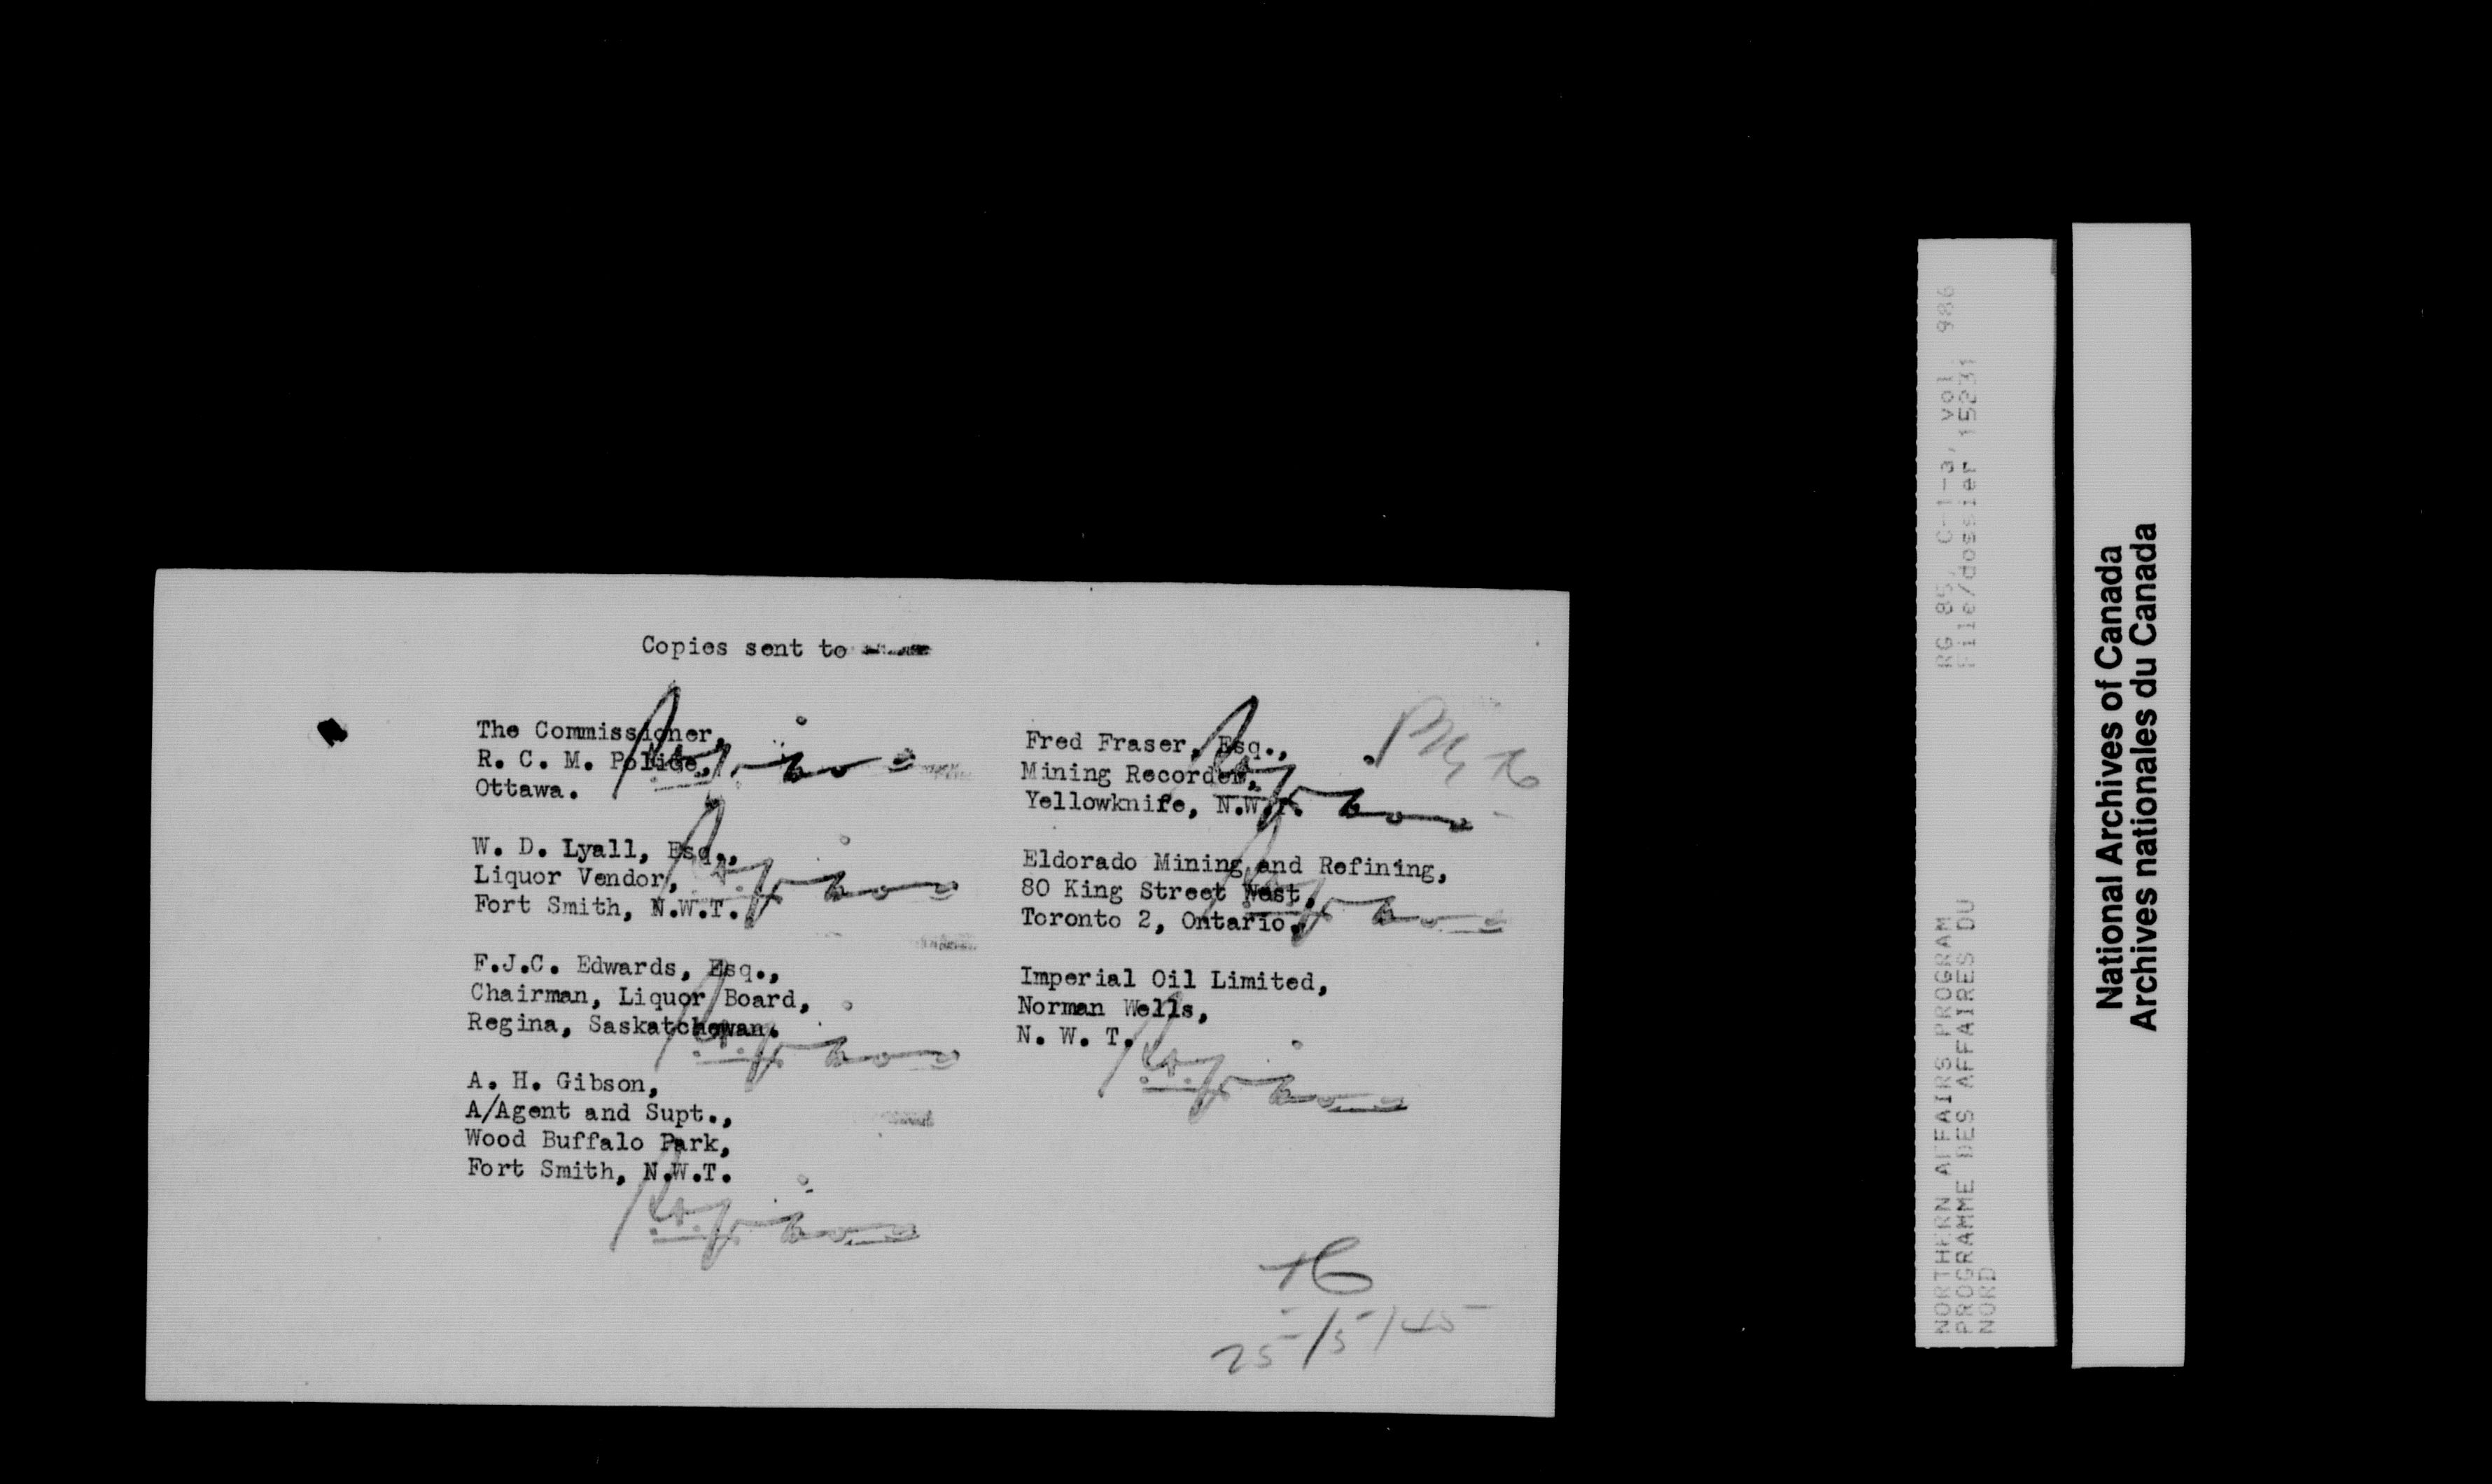 Copies sent to
The Commissioner,
R. C. M. Police,
Ottawa.
W. D. Lyall, Esq.,
Liquor Vendor,
Fort Smith, N.W.T.
F.J.C. Edwards, Esq.,
Chairman, Liquor Board,
Regina, Saskatchewan.
A. H. Gibson,
A/Agent and Supt.,
Wood Buffalo Park,
Fort Smith, N.W.T.
Fred Fraser, Esq.,
Mining Recorder,
Yellowknife, N.W.T.
Eldorado Mining and Refining,
80 King Street West,
Toronto 2, Ontario.
Imperial Oil Limited,
Norman Wells,
N. W. T.
25/5/45
RG 85, C-1-a, vol 986
File/dossier 15231
NORTHERN AFFAIRS PROGRAM
PROGRAMME DES AFFAIRES DU
NORD
National Archives of Canada
Archives nationales du Canada